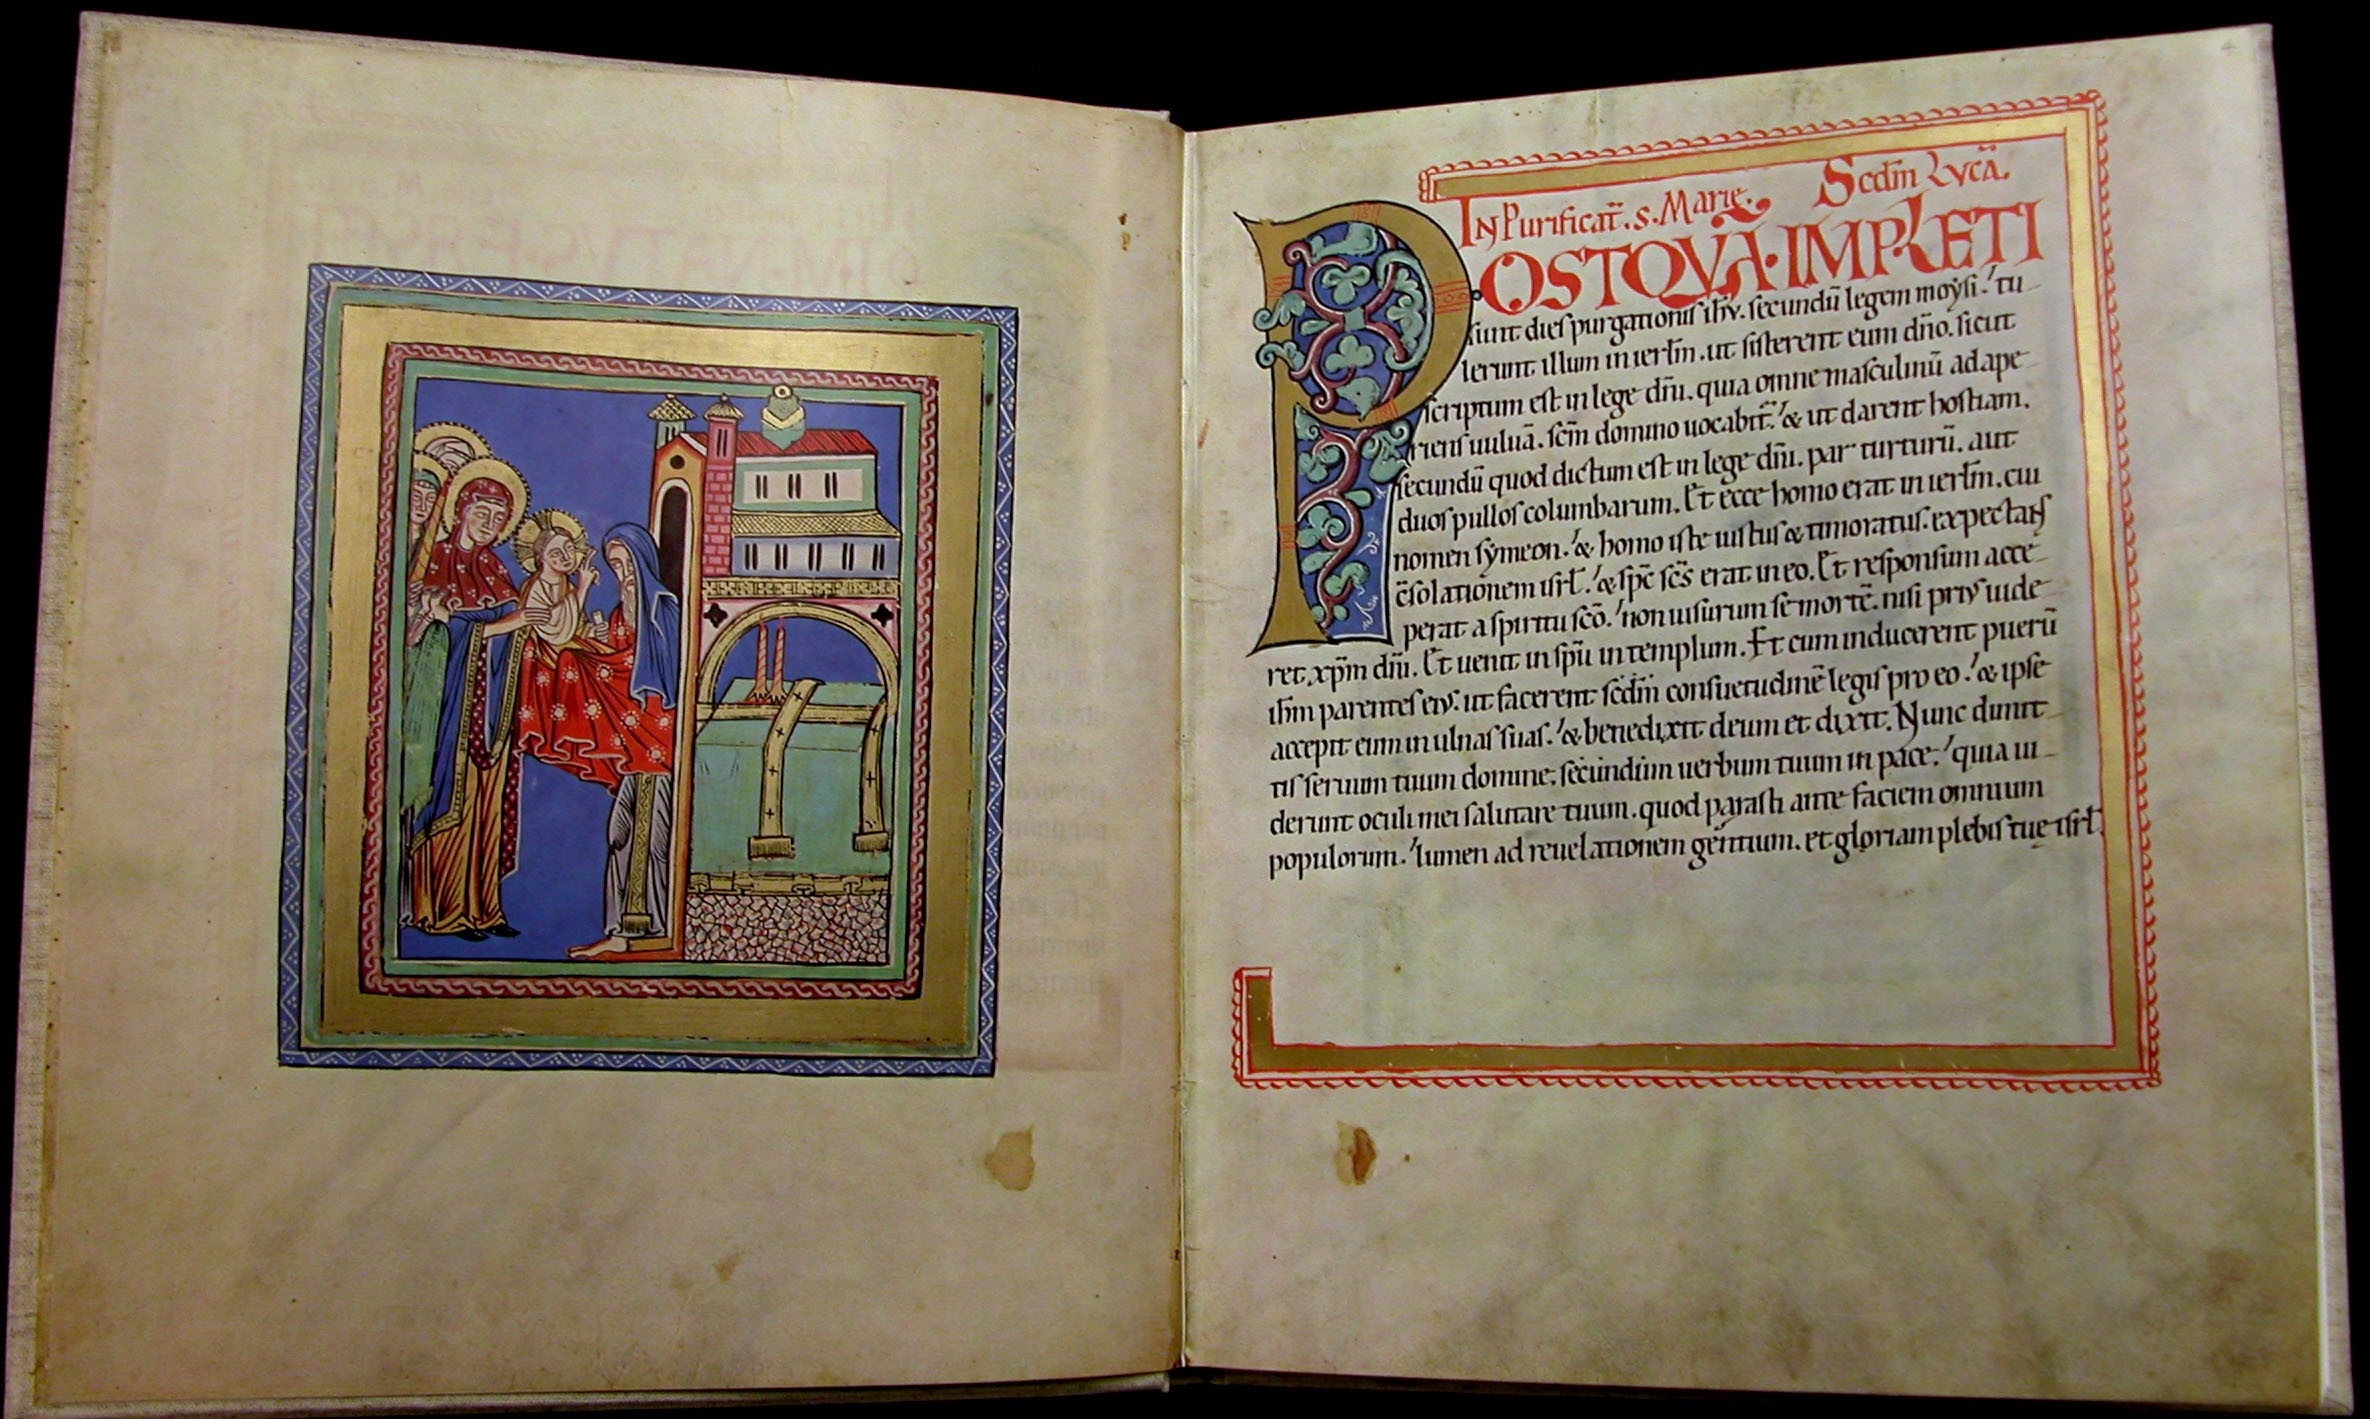 4
IN Purificat̄. S. Marie. Scdm̄ Lvcā.
POSTQVĀ·IMPLETI
sunt dies purgationis ihv̄. secundū legem moẏsi. tu
lerunt illum in ierl̄m. ut sisterent eum dn̄o. sicut
scriptum est in lege dn̄i. quia omne masculinū adape
riens uuluā. scm̄ domino uocabit̄. & ut darent hostiam.
secundū quod dictum est in lege dn̄i. par turturū. aut
duos pullos columbarum. Et ecce homo erat in ierl̄m. cui
nomen sẏmeon. & homo iste iustus & timoratus. expectans
c̄solationem isrl̄. & spc̄ sc̄s erat in eo. Et responsum acce
perat a spiritu scō. non uisurum se mortē. nisi prius uide
ret xp̄m dn̄i. Et uenit in spū in templum. Et cum inducerent puerū
ih̄m parentes eius. ut facerent scdm̄ consuetudinē legis pro eo. & ipse
accepit eum in ulnas suas. & benedixit deum et dixit. Nunc dimit
tis seruum tuum domine. secundum uerbum tuum in pace. quia ui
derunt oculi mei salutare tuum. quod parasti ante faciem omnium
populorum. lumen ad reuelationem gentium. et gloriam plebis tuę isrl̄.